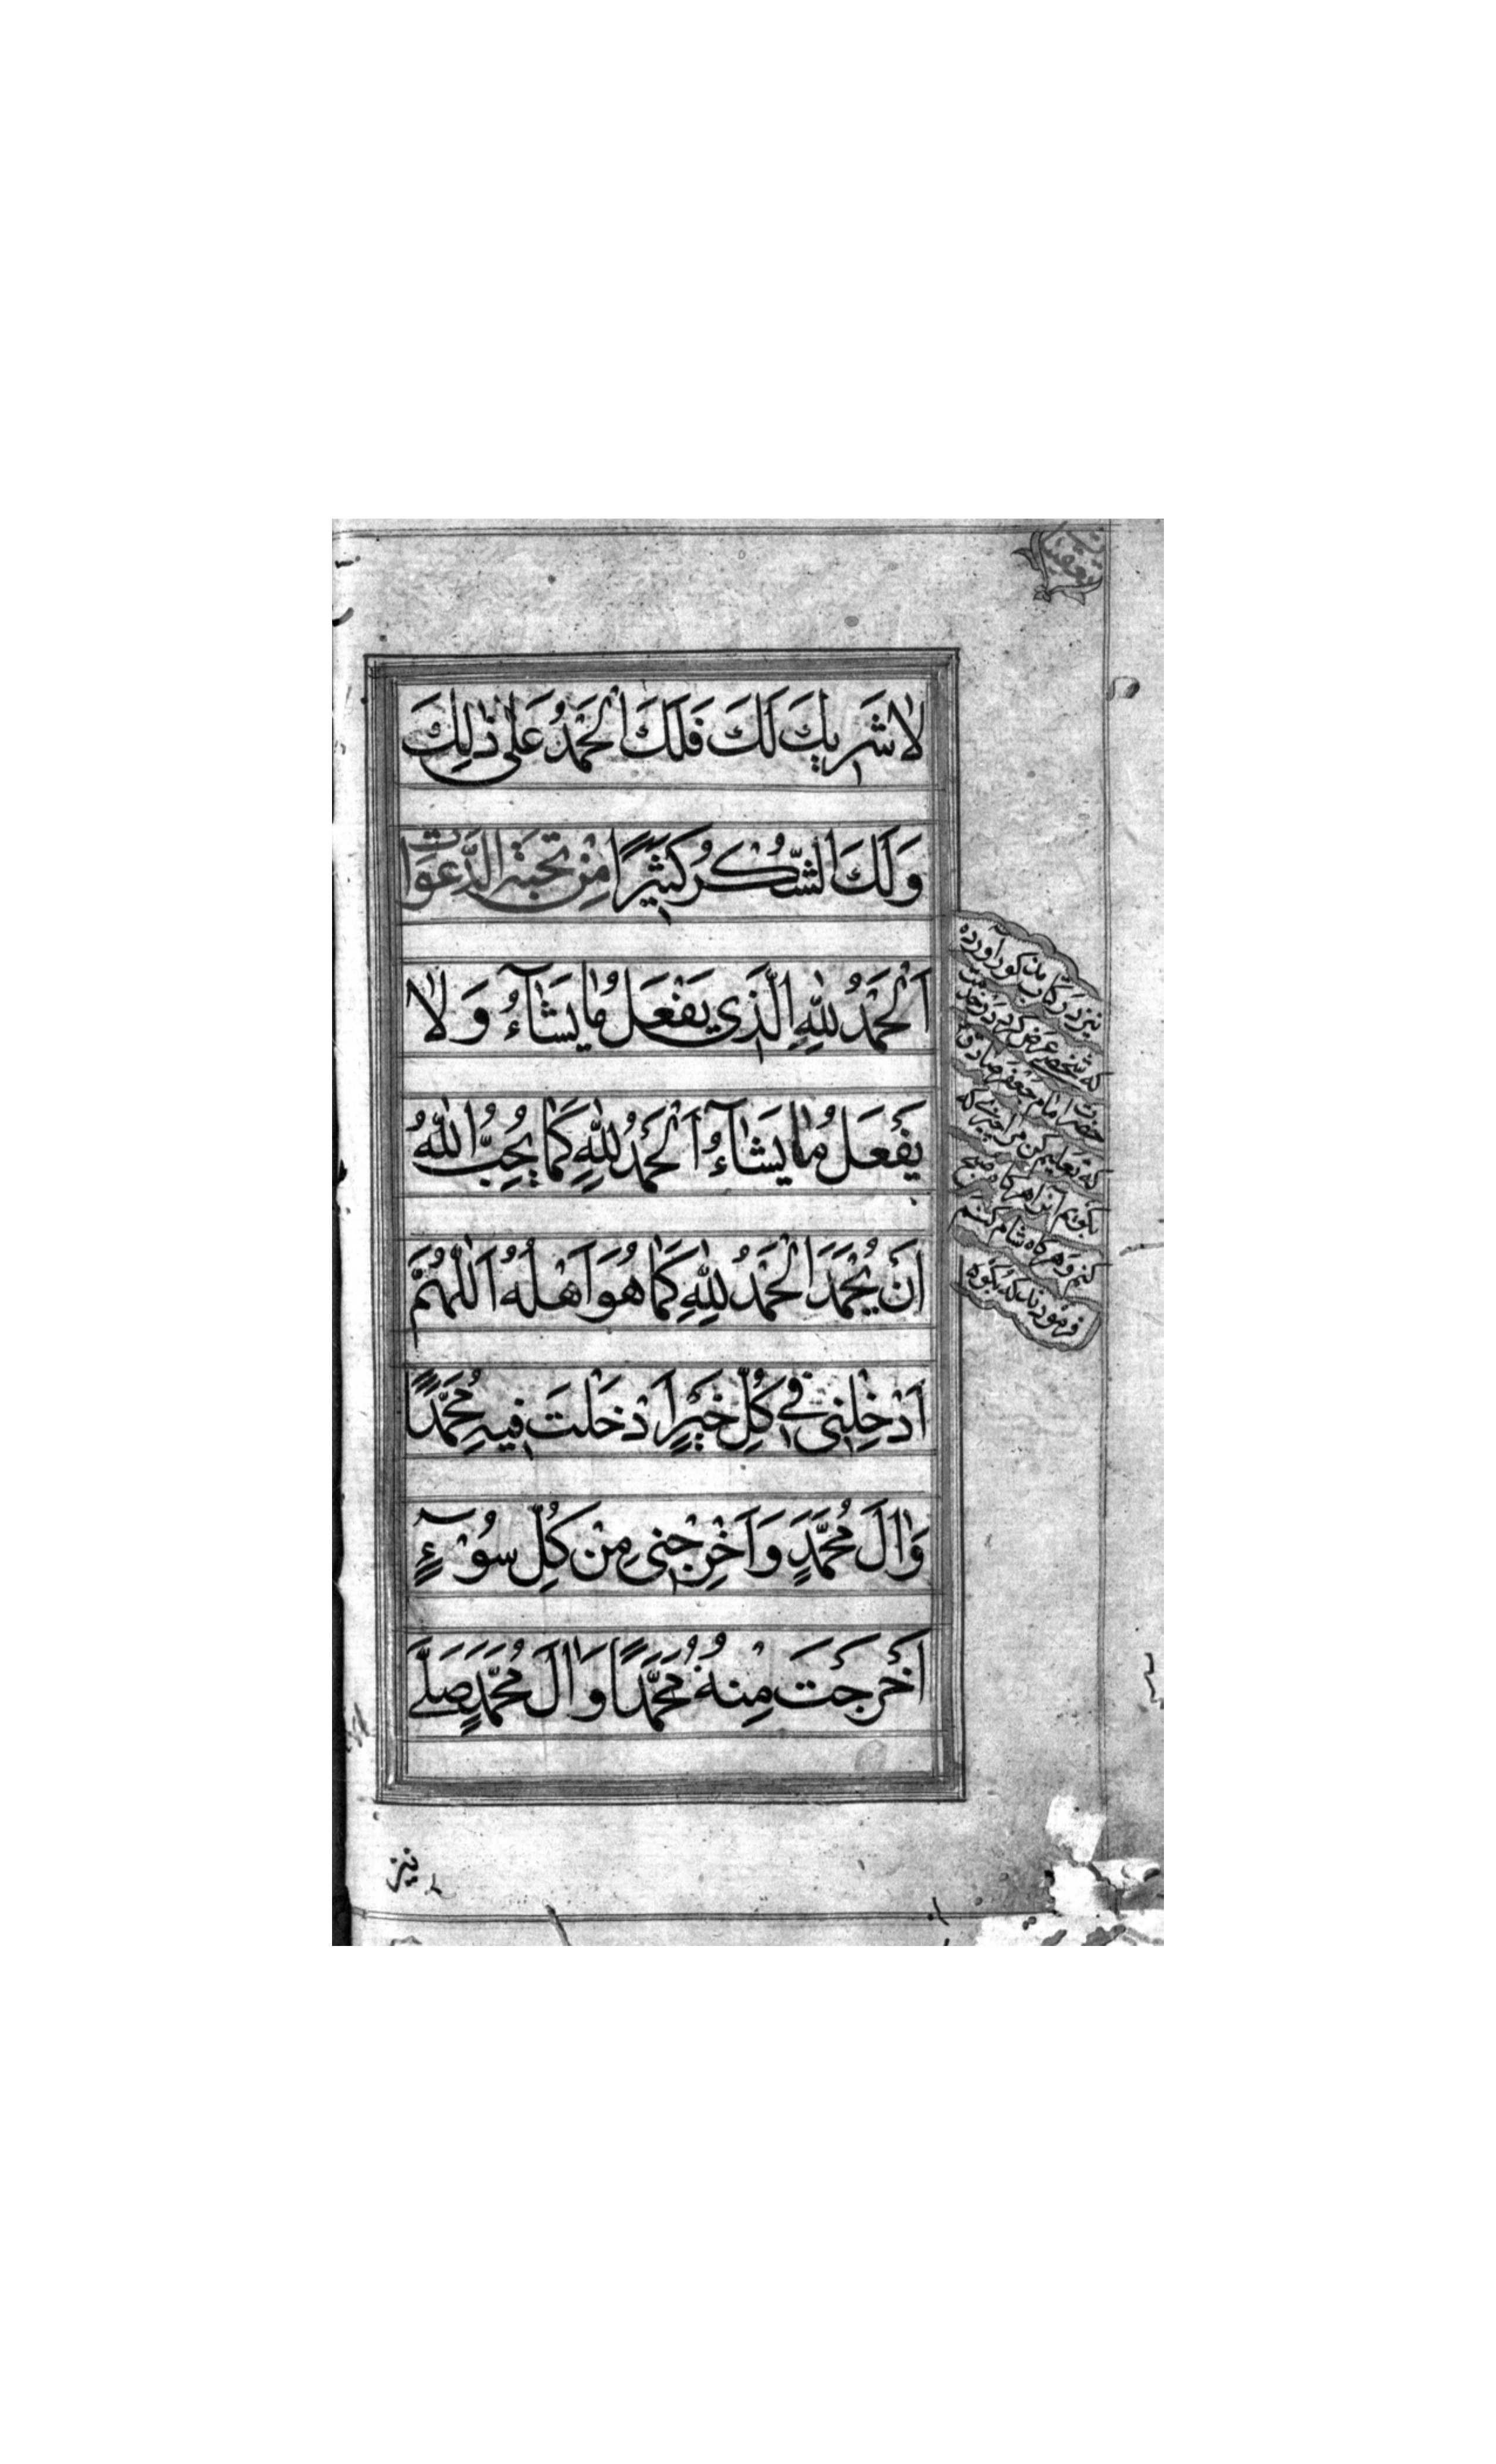 لا شَرِيكَ لَكَ فَلَكَ الْحَمْدُ عَلىٰ ذٰلِكَ
وَلَكَ الشُّكْرُ كَثِيْرًا مِنْ نخبة الدَّعَوَات
اَلْحَمْدُ لِلّٰهِ الَّذِي يَفْعَلُ مٰا يَشٰآءُ وَلٰا
يَفْعَلُ مٰا يَشٰآءُ اَلْحَمْدُ لِلّٰهِ كَمٰا يُحِبُّ اللّٰهُ
اَنْ يُحْمَدَ الْحَمْدُ لِلّٰهِ كَمٰا هُوَ اَهْلُهُ اَللّٰهُمَّ
اَدْخِلْنِي فِي كُلِّ خَيْرٍ اَدْخَلْتَ فِيهِ مُحَمَّدًا
وَاٰلَ مُحَمَّدٍ وَاَخْرِجْنِي مِنْ كُلِّ سُوْءٍ
اَخْرَجْتَ مِنْهُ مُحَمَّدًا وَاٰلَ مُحَمَّدٍ صَلَّے
نیز در کتاب مذکور آورده
که شخصے عرض کرد در خدمت
حضرت امام جعفر صادق
که تعلیم کن مرا چیزے که
بگویم آنرا هرگاه صبح
کنم و هرگاه شام کنم
فرمودند که بگوه
نیز